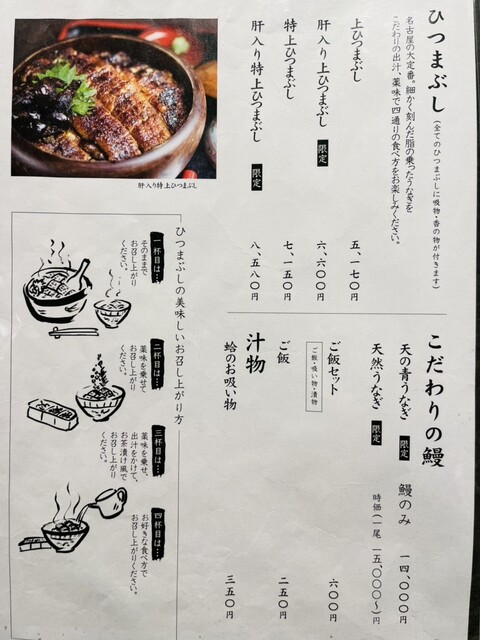 ひつまぶし(全てのひつまぶしに吸物・香の物が付きます)
名古屋の大定番。細かく刻んだ脂の乗ったうなぎを
こだわりの出汁、薬味で四通りの食べ方をお楽しみください。
上ひつまぶし 五、一七〇円
肝入り上ひつまぶし 限定 六、六〇〇円
特上ひつまぶし 七、一五〇円
肝入り特上ひつまぶし 限定 八、五八〇円
肝入り特上ひつまぶし
こだわりの鰻
天の青うなぎ 限定 鰻のみ 一四、〇〇〇円
天然うなぎ 限定 時価(一尾 一五、〇〇〇〜)円
ご飯セット 六〇〇円
ご飯・吸い物・漬物
ご飯 二五〇円
汁物
蛤のお吸い物 三五〇円
ひつまぶしの美味しいお召し上がり方
一杯目は…
そのままで
お召し上がり
ください。
二杯目は…
薬味を乗せて
お召し上がり
ください。
三杯目は…
薬味を乗せ、
出汁をかけて、
お茶漬け風で
お召し上がり
ください。
四杯目は…
お好きな食べ方で
お召し上がりください。